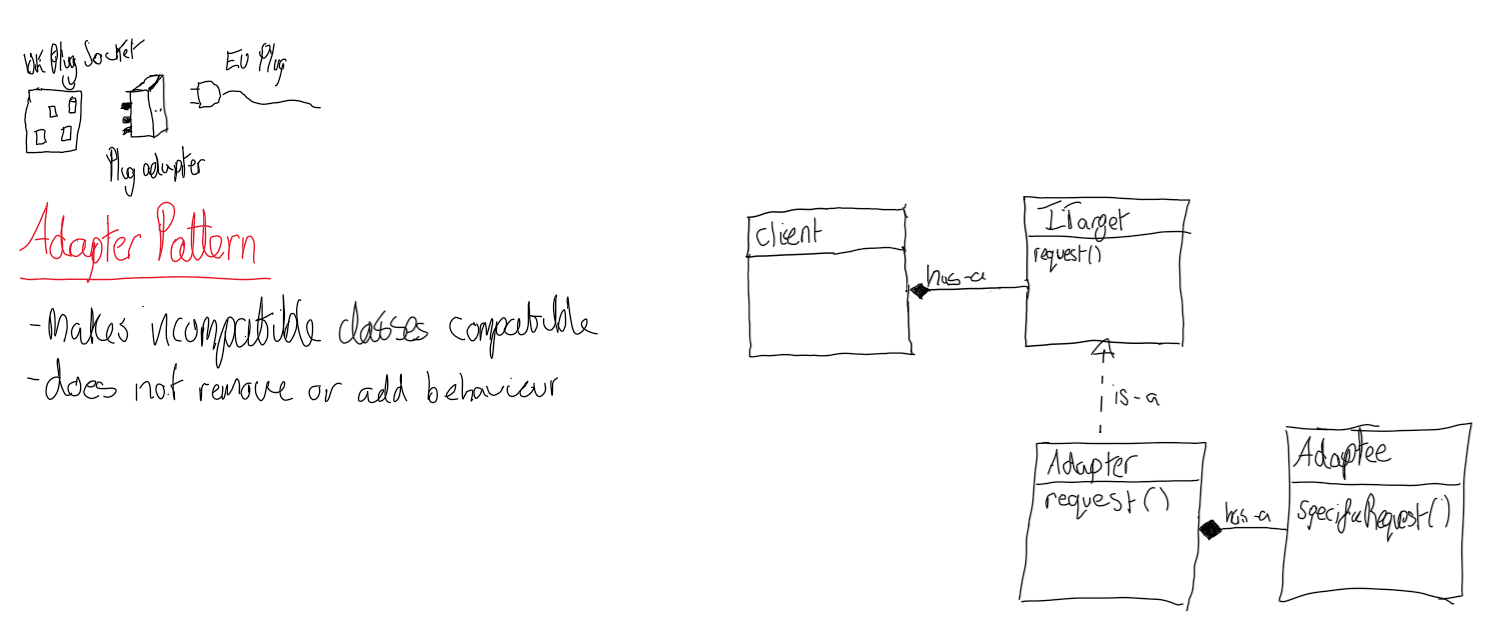 UK Plug Socket
EU Plug
Plug adapter
Adapter Pattern
- Makes incompatible classes compatible
- does not remove or add behaviour
Client
has-a
ITarget
request()
is-a
Adapter
request()
has-a
Adaptee
specificRequest()